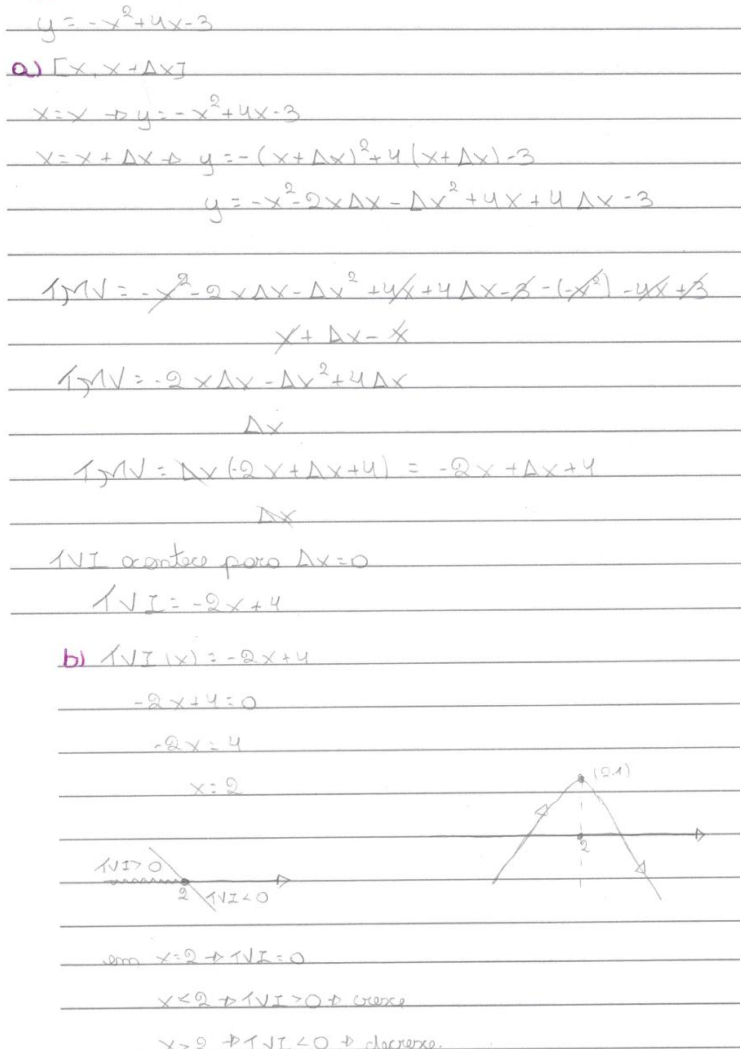 y = -x²+4x-3
a) [x, x+Δx]
x=x → y=-x²+4x-3
x=x+Δx → y=-(x+Δx)²+4(x+Δx)-3
y=-x²-2xΔx-Δx²+4x+4Δx-3
TMV = -x²-2xΔx-Δx²+4x+4Δx-3-(-x²)-4x+3
x+Δx-x
TMV = -2xΔx-Δx²+4Δx
Δx
TMV = Δx(-2x+Δx+4) = -2x+Δx+4
Δx
TVI acontece para Δx=0
TVI = -2x+4
b) TVI(x) = -2x+4
-2x+4=0
-2x=4
x=2
(2,1)
2
TVI>0
2
TVI<0
em x=2 → TVI=0
x<2 → TVI>0 → cresce
x>2 → TVI<0 → decresce.